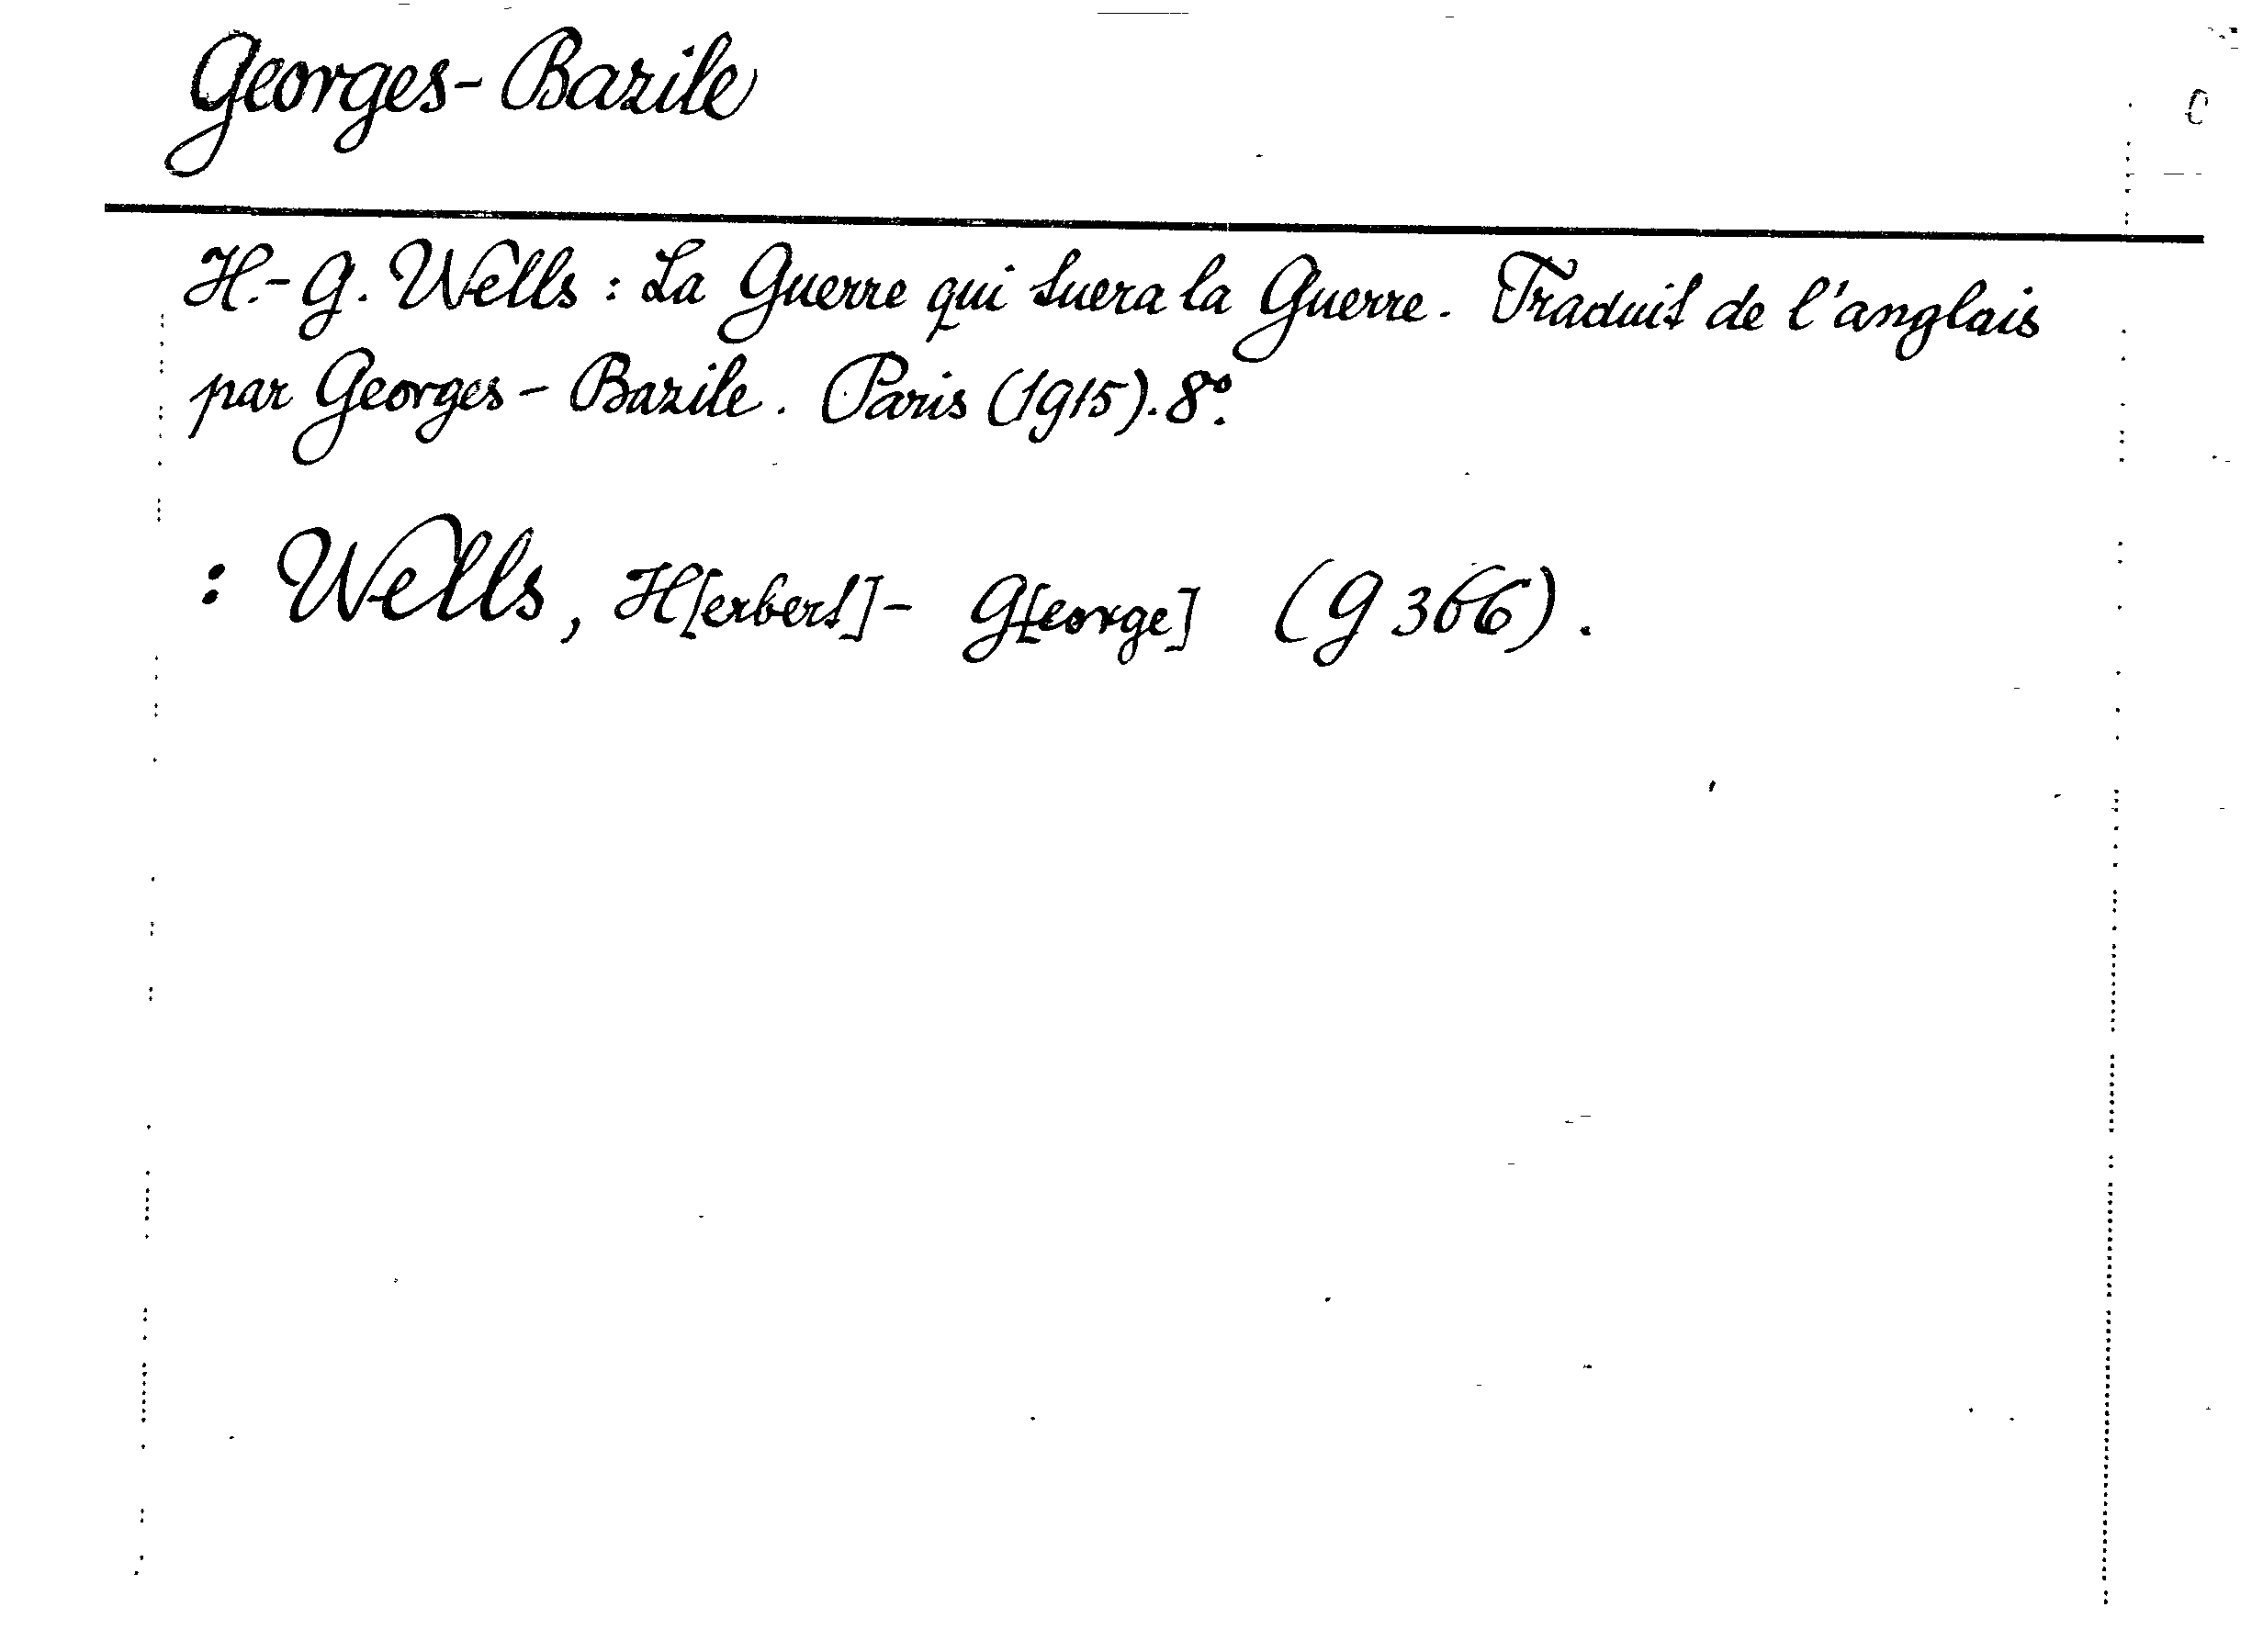 Georges-Bazile
H.-G. Wells: La Guerre qui tuera la Guerre. Traduit de l'anglais
par Georges-Bazile. Paris (1915). 8°.
: Wells, H[erbert]- G[eorge] (G 366).